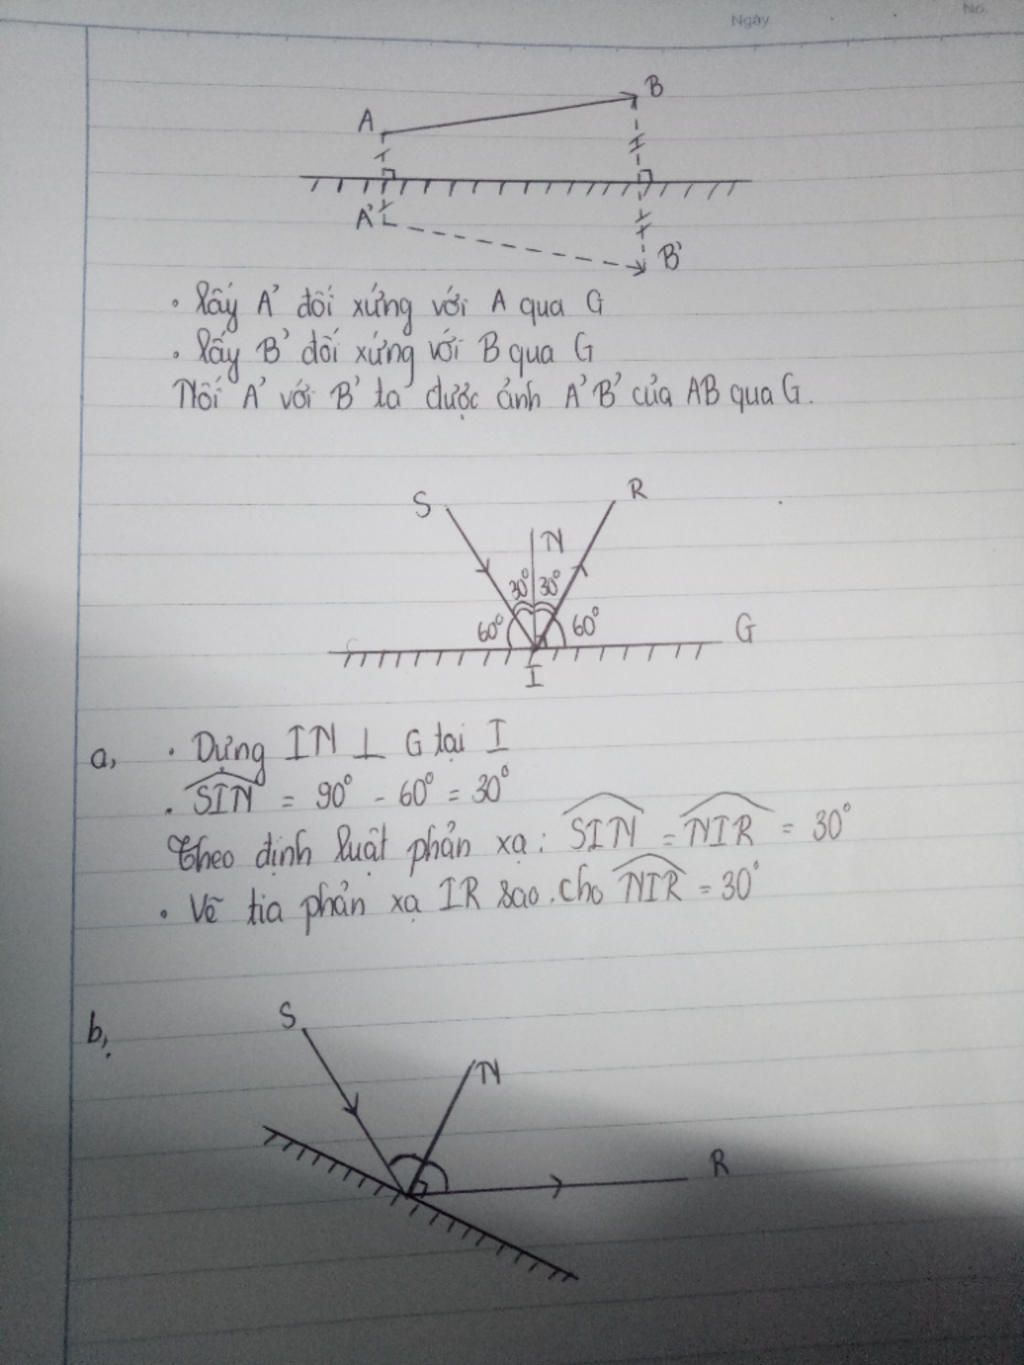 Ngày
No.
A
B
A'
B'
• Lấy A' đối xứng với A qua G
• Lấy B' đối xứng với B qua G
Nối A' với B' ta được ảnh A'B' của AB qua G.
S
R
N
30° 30°
60°
60°
G
I
a, • Dựng IN ⊥ G tại I
• SIN = 90° - 60° = 30°
Theo định luật phản xạ: SIN = NIR = 30°
• Vẽ tia phản xạ IR sao cho NIR = 30°
b,
S
N
R